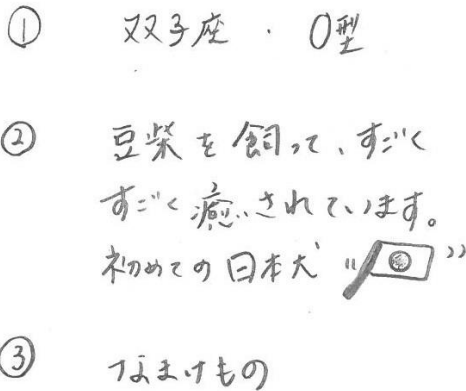 ① 双子座・O型
② 豆柴を飼って、すごく
すごく癒されています。
初めての日本犬 “ ”
③ なまけもの